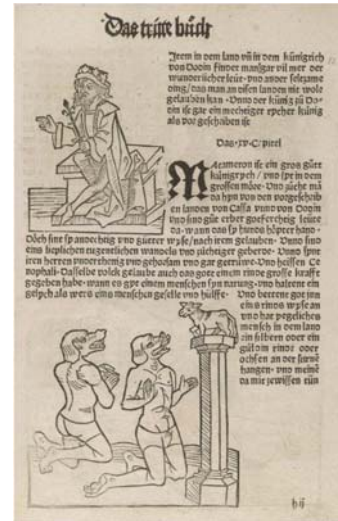 Das tritte bůch
Item in dem land vñ in dem künigrich
von Dodin findet man gar vil mer der
wunderlicher leüt · vnd ander selczame
ding / das man an disen landen nit wole
gelauben kan · Vnnd der künig zů Do-
din ist gar ein mechtiger rycher künig
als vor geschriben ist
Das · xv · C / pitel
Macameron ist ein gros gůtt
künigrych / vnd lyt in dem
grossen möre · Vnd zücht mā
da hyn von den vorgeschrib
en landen von Caffa vnnd von Dodin
vnd sind gůt erber gotforchtig leüte
da · wann das sy hunds höpter hand ·
Doch sint sy andechtig vnd gůtter wyse / nach irem gelauben · Vnnd sind
eins lieplichen tugentlichen wandels vnd züchtiger geberde · Vnnd synt
iren herren vnderthenig vnd gehorsam vnd gar getrüwe · Vnd heissen Ce
nophali · Dasselbe volck gelaubt auch das gott einem rinde grosse krafft
gegeben habe · wann es gyt einem menschen syn narung · vnd haltent ein
gelych als wers eins menschen geselle vnd hülffe · Vnd bettent got inn
eins rinds wyse an
vnd hat yegeliches
mensch in dem land
ein silbern oder ein
güldin rinde oder
ochsen an der stirnē
hangen · vnd meinē
da mit zewissen tůn
h ij